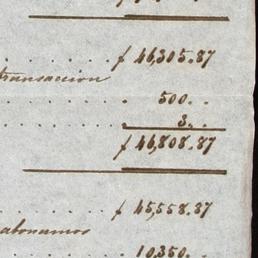 ƒ 46,305.87
transaccion
500..
3..
ƒ 46,808.87
ƒ 45,558.37
abonamos
10,350..